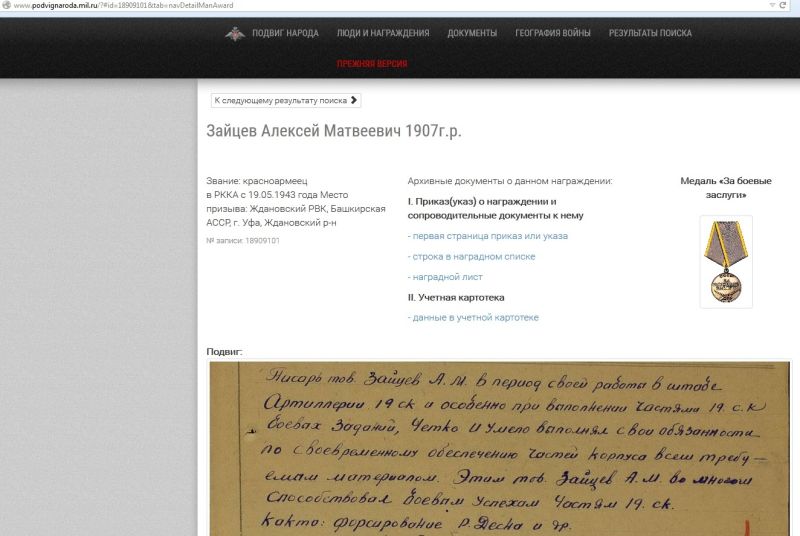 www.podvignaroda.mil.ru/?#id=18909101&tab=navDetailManAward
ПОДВИГ НАРОДА ЛЮДИ И НАГРАЖДЕНИЯ ДОКУМЕНТЫ ГЕОГРАФИЯ ВОЙНЫ РЕЗУЛЬТАТЫ ПОИСКА
ПРЕЖНЯЯ ВЕРСИЯ
К следующему результату поиска
Зайцев Алексей Матвеевич 1907г.р.
Звание: красноармеец
в РККА с 19.05.1943 года Место
призыва: Ждановский РВК, Башкирская
АССР, г. Уфа, Ждановский р-н
№ записи: 18909101
Архивные документы о данном награждении:
I. Приказ(указ) о награждении и
сопроводительные документы к нему
- первая страница приказ или указа
- строка в наградном списке
- наградной лист
II. Учетная картотека
- данные в учетной картотеке
Медаль «За боевые
заслуги»
Подвиг:
Писарь тов. Зайцев А.М. в период своей работы в штабе
Артиллерии 19 ск и особенно при выполнении частями 19. с.к
боевах Заданий, Четко и умело выполнял свои обязанности
по своевременному обеспечению частей корпуса всем требу-
емам материалом. Этим тов. Зайцев А.М. во многом
Способствовал боевам успехам Частям 19. ск.
Както: форсирование р. Десна и др.